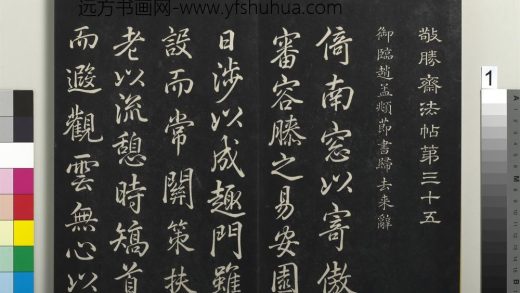 远方书画网-www.yfshuhua.com
敬勝齋法帖第三十五
御臨趙孟頫節書歸去来辭
倚南窓以寄傲
審容膝之易安園
日涉以成趣門雖
設而常關策扶
老以流憩時矯首
而遐觀雲無心以
1